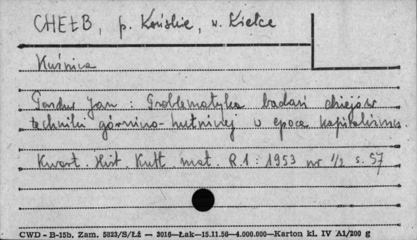 CHEŁB, p. Końskie, w. Kielce
Kuźnica
Pazdur Jan : Problematyka badań dziejów
techniki górniczo-hutniczej w epoce kapitalizmu.
Kwart. Hist. Kult. mat. R.1: 1953 nr 1/2 s. 57
CWD - B-15b. Zam. 5823/S/Łż — 3016—Łak—15.11.56—4.000.000—Karton kl. IV A1/200 g